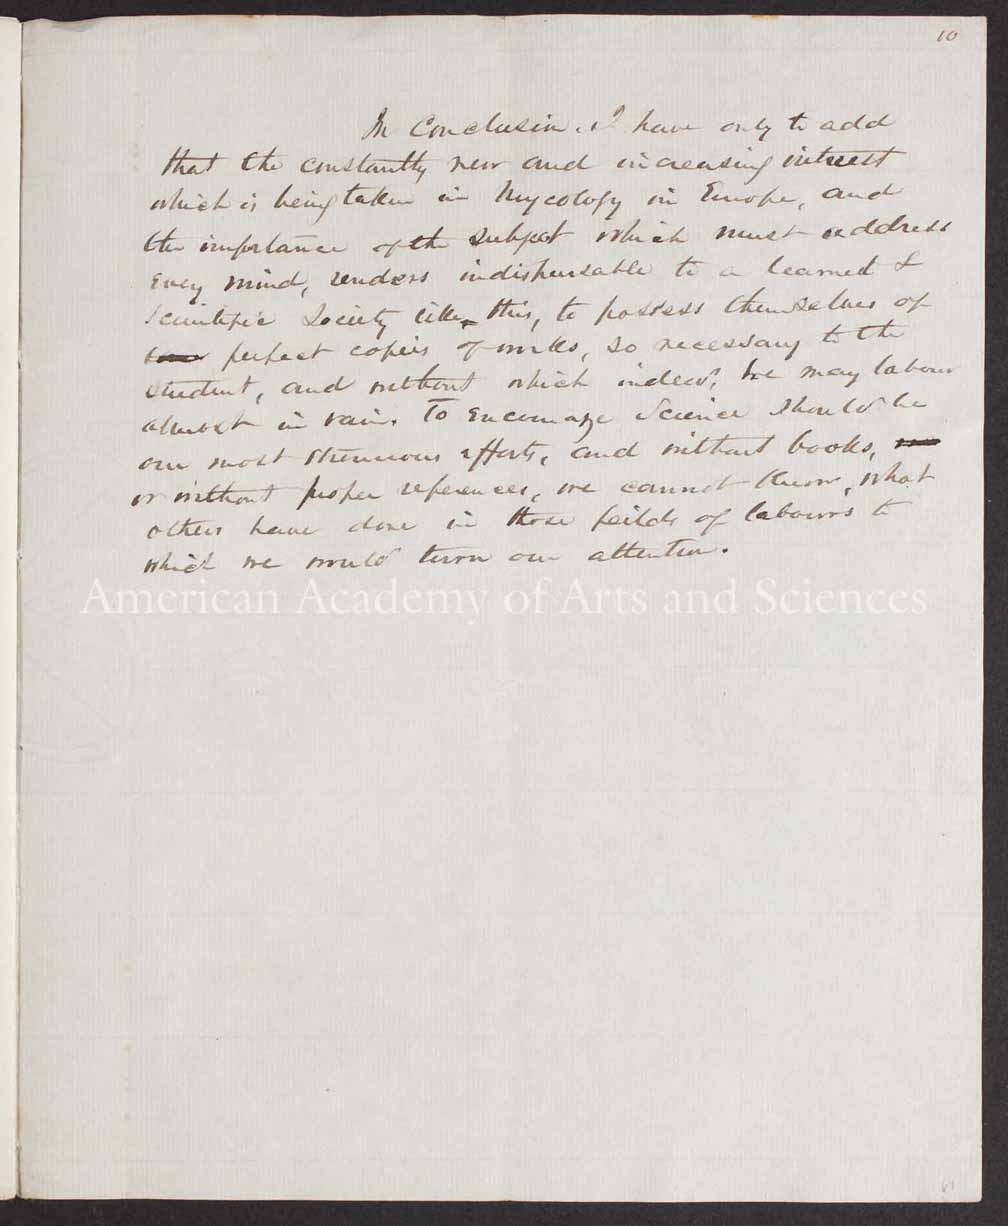 10
In Conclusion, I have only to add
that the constantly new and increasing interest
which is being taken in Mycology in Europe, and
the importance of the subject which must address
every mind, renders indispensable to a learned &
Scientific Society like this, to possess themselves of
perfect copies of works, so necessary to the
student, and without which indeed, we may labour
almost in vain. To encourage Science should be
our most strenuous efforts, and without books,
or without proper references, we cannot know, what
others have done in those feilds of labours to
which we would turn our attention.
American Academy of Arts and Sciences